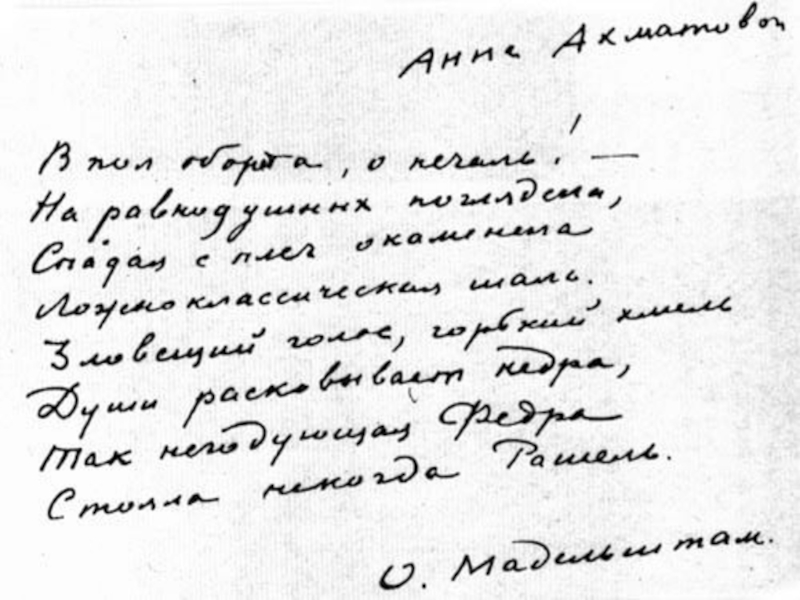 Анне Ахматовой
В пол оборота, о печаль! —
На равнодушных поглядела,
Спадая с плеч окаменела
Ложноклассическая шаль.
Зловещий голос, горький хмель
Души расковывает недра,
Так негодующая Федра
Стояла некогда Рашель.
О. Мадельштам.